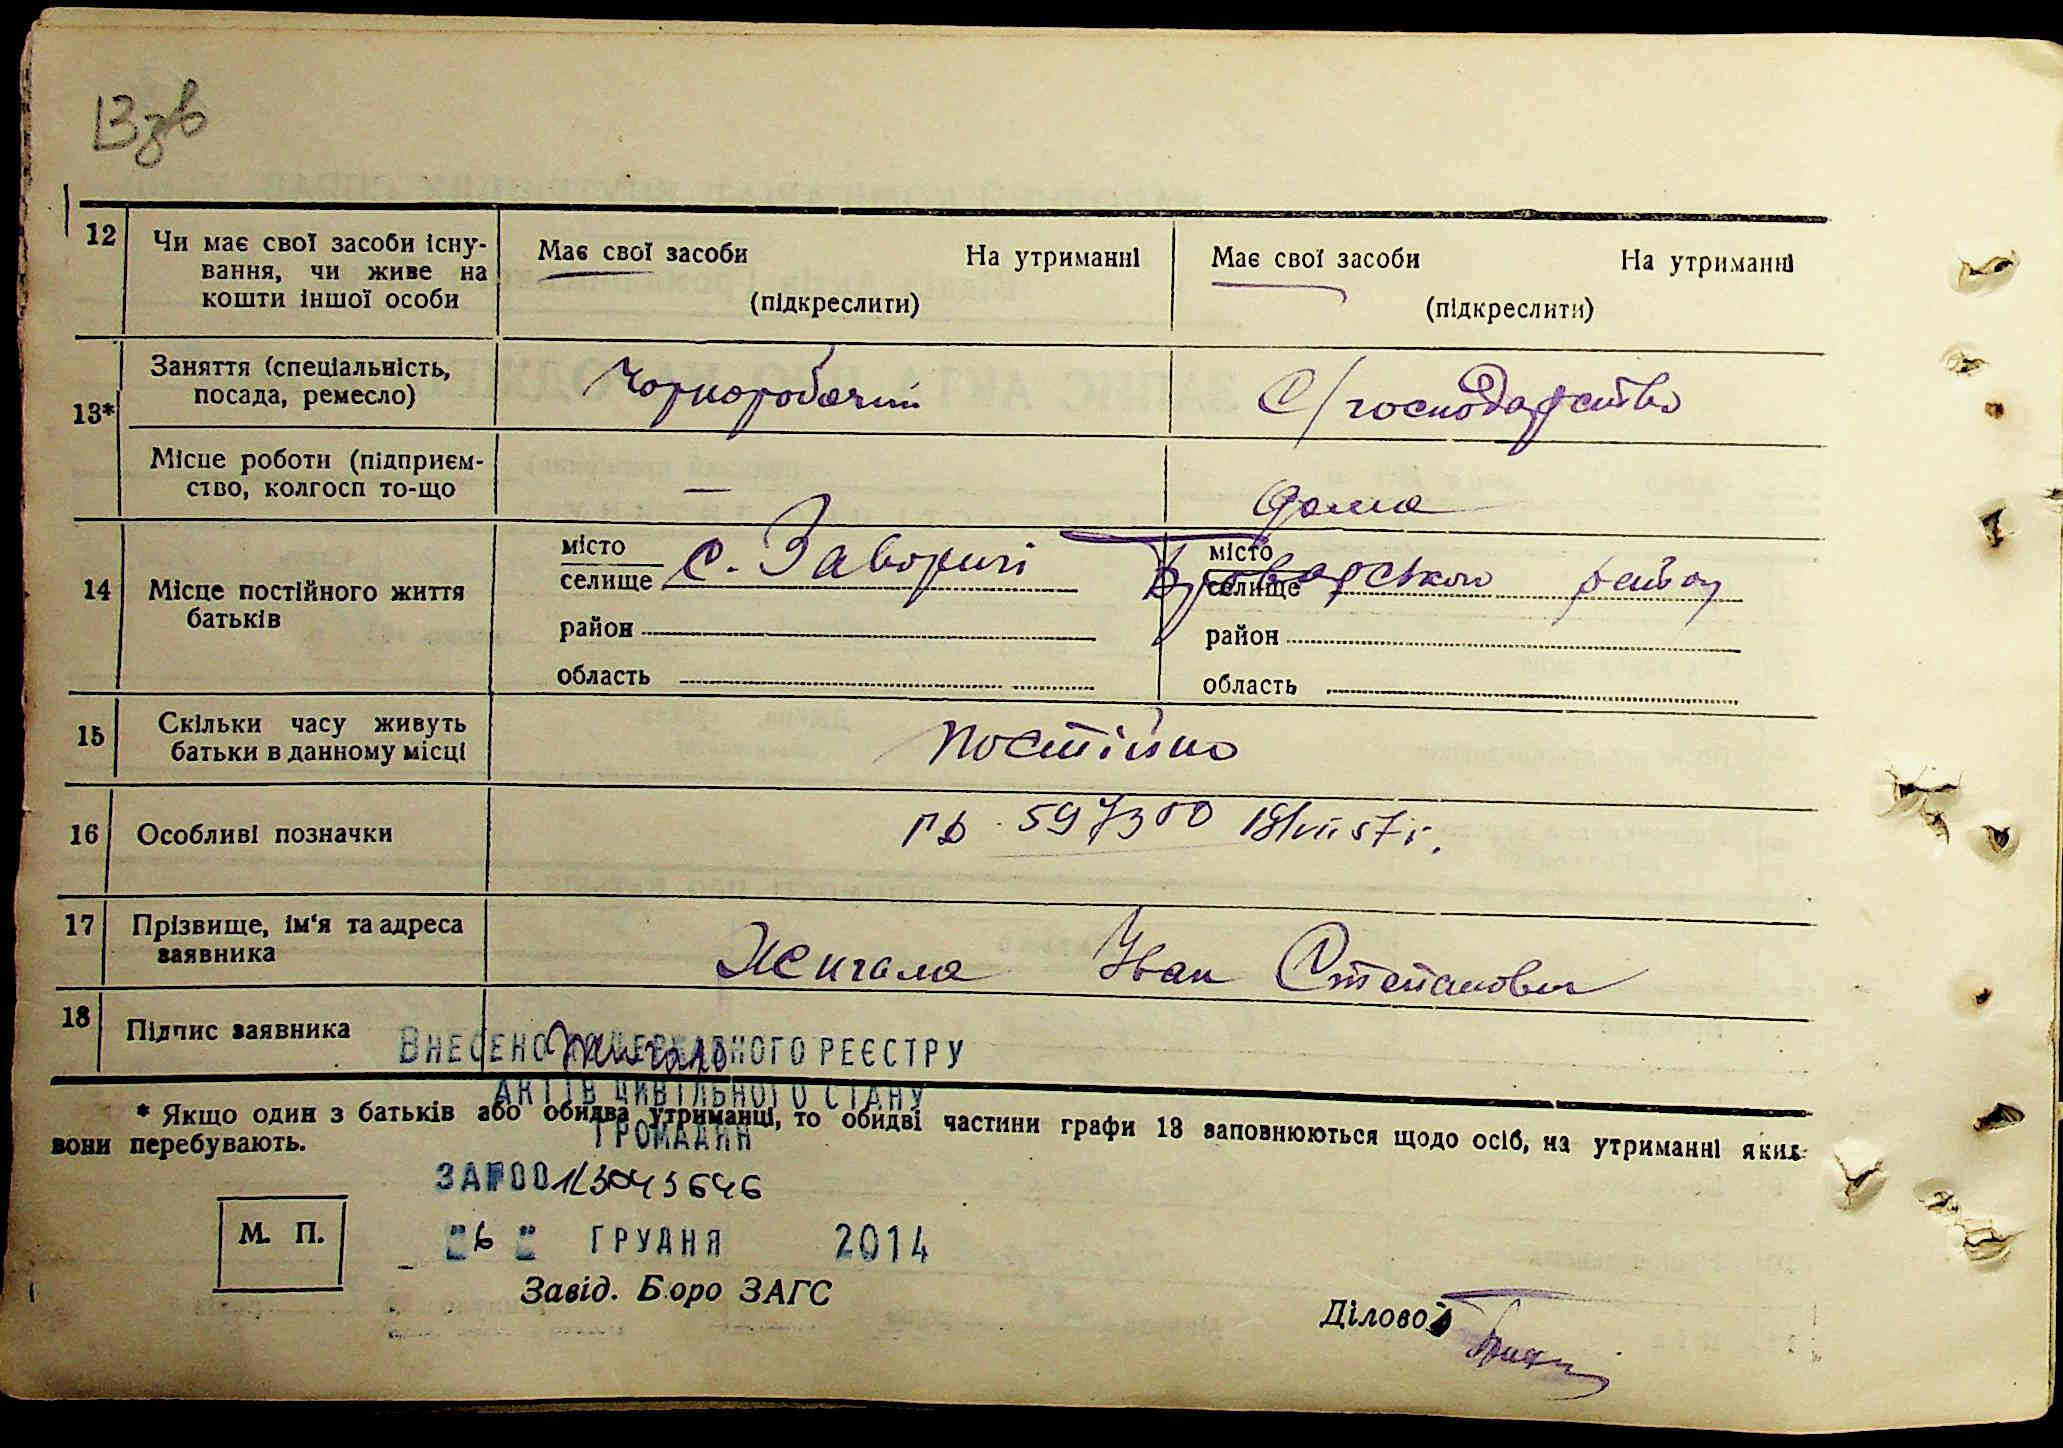 Взв
12 Чи має свої засоби існу-
вання, чи живе на
кошти іншої особи
Має свої засоби На утриманні
(підкреслити)
Має свої засоби На утриманні
(підкреслити)
13* Заняття (спеціальність,
посада, ремесло)
Чорноробочий
С/господарство
Місце роботи (підприєм-
ство, колгосп то-що
—
дома
14 Місце постійного життя
батьків
місто
селище с. Заворичі
район
область
місто
селище Броварського район
район
область
15 Скільки часу живуть
батьки в данному місці
постійно
16 Особливі позначки
597300 18/VII 57 г.
17 Прізвище, ім'я та адреса
заявника
Жигала Іван Степанович
18 Підпис заявника
Жигало
ВНЕСЕНО ДО ДЕРЖАВНОГО РЕЄСТРУ
АКТІВ ЦИВІЛЬНОГО СТАНУ
ГРОМАДЯН
* Якщо один з батьків або обидва утриманці, то обидві частини графи 13 заповнюються щодо осіб, на утриманні яких
вони перебувають.
ЗА №00113045646
ГРУДНЯ 2014
М. П.
Завід. Бюро ЗАГС
Діловод